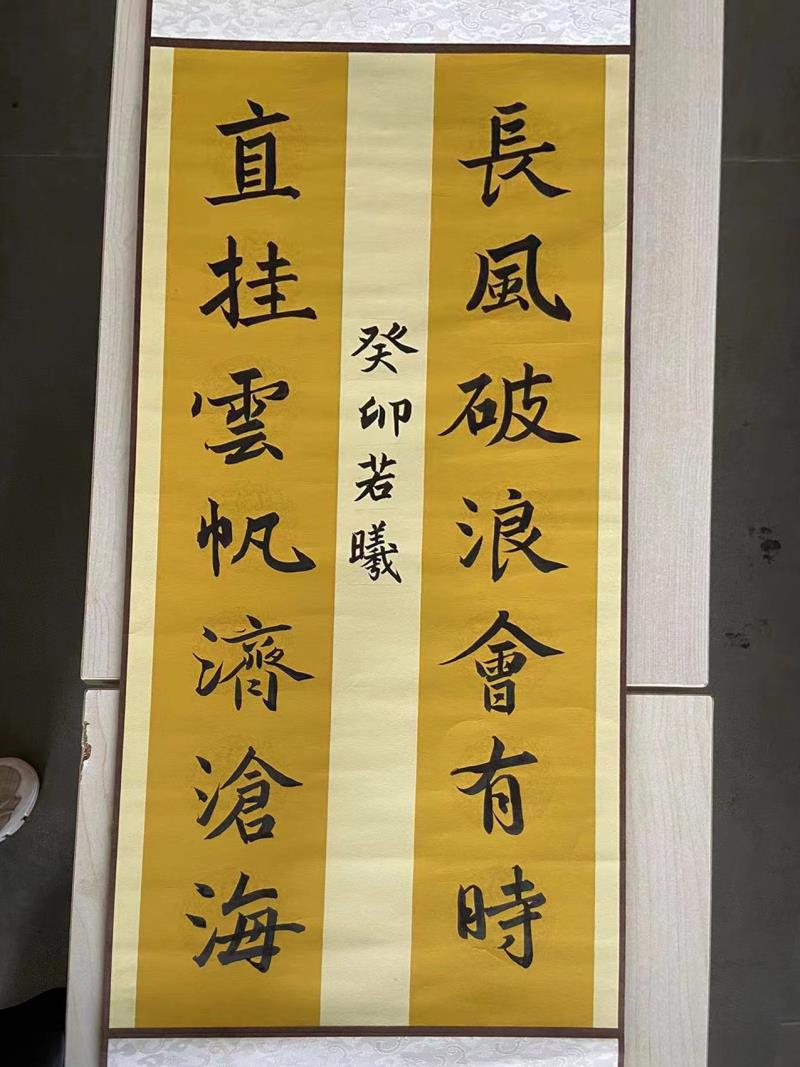 長風破浪會有時
直挂雲帆濟滄海
癸卯若曦